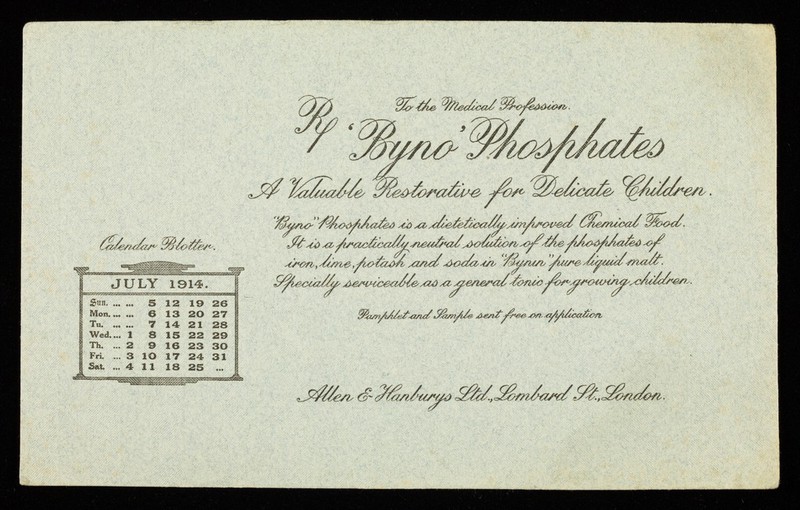 To the Medical Profession.
Rx 'Byno' Phosphates
A Valuable Restorative for Delicate Children.
"Byno" Phosphates is a dietetically improved Chemical Food.
It is a practically neutral solution of the phosphates of
iron, lime, potash, and soda in "Bynin" pure liquid malt.
Specially serviceable as a general tonic for growing children.
Pamphlet and Sample sent free on application
Allen & Hanburys Ltd., Lombard St., London.
Calendar Blotter.
JULY 1914.
Sun. ... ... 5 12 19 26
Mon. ... ... 6 13 20 27
Tu. ... ... 7 14 21 28
Wed. ... 1 8 15 22 29
Th. ... 2 9 16 23 30
Fri. ... 3 10 17 24 31
Sat. ... 4 11 18 25 ...